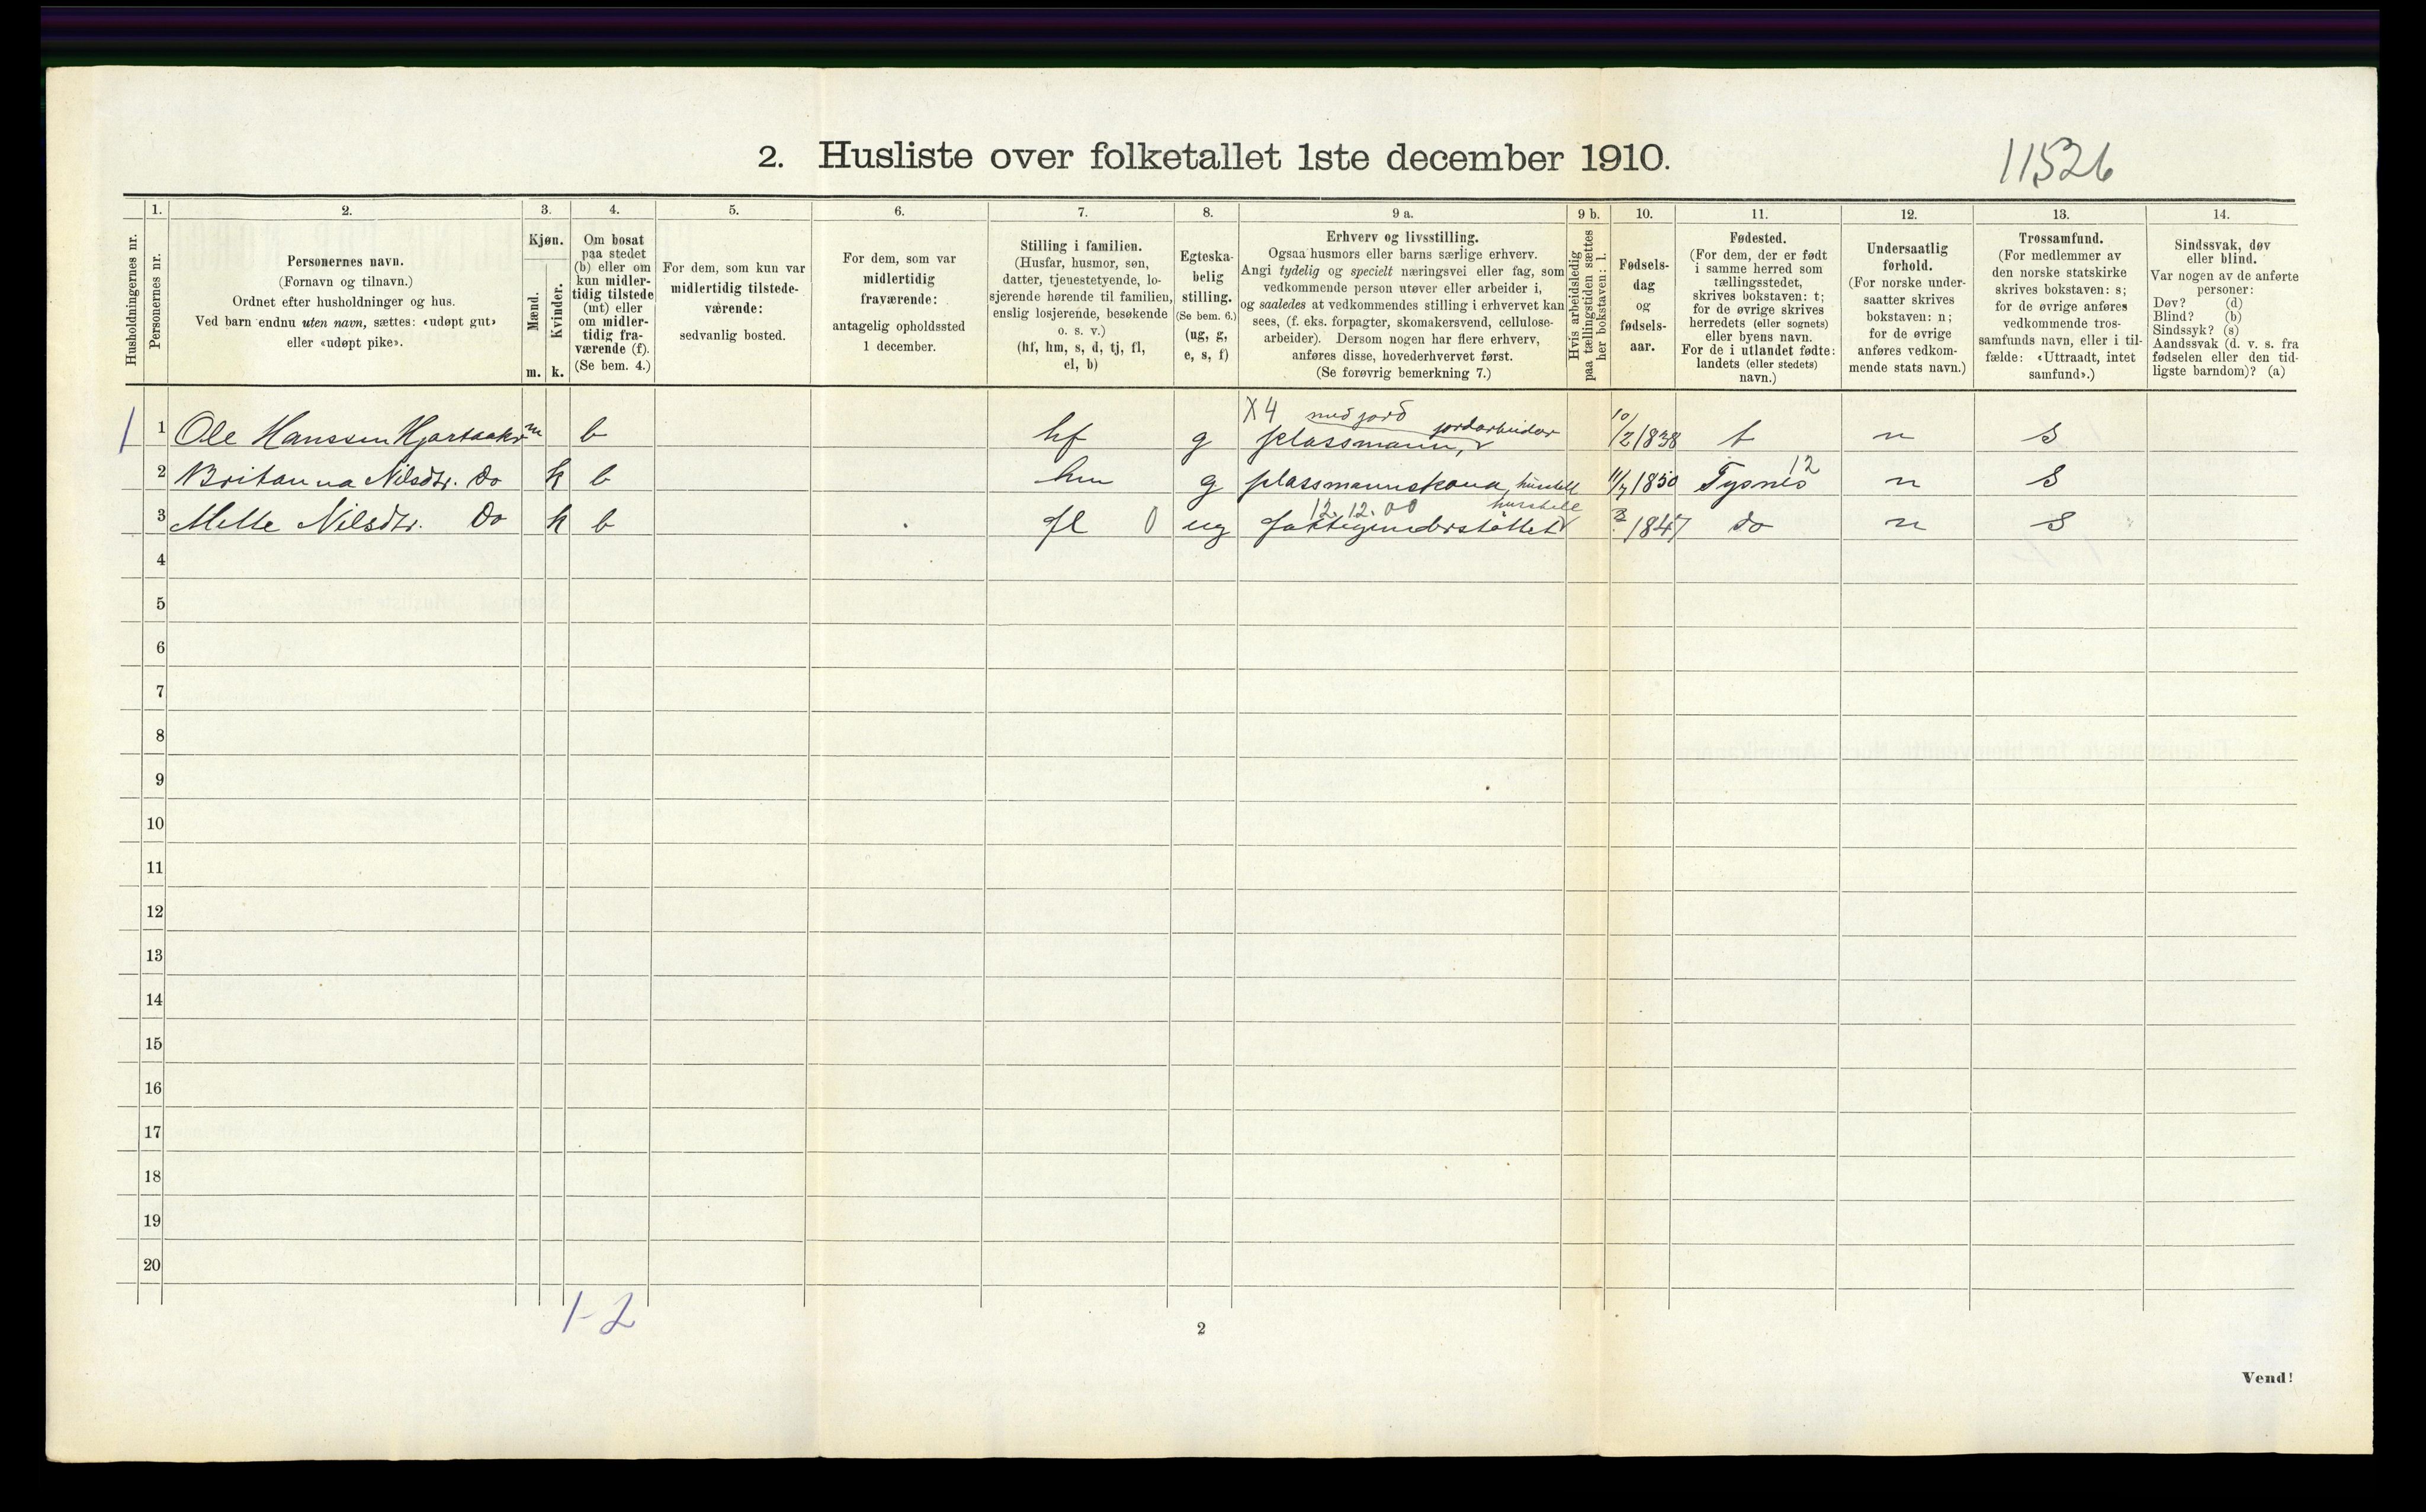 2. Husliste over folketallet 1ste december 1910.
11526
Husholdningernes nr.
1.
Personernes nr.
2.
Personernes navn.
(Fornavn og tilnavn.)
Ordnet efter husholdninger og hus.
Ved barn endnu uten navn, sættes: «udøpt gut»
eller «udøpt pike».
3.
Kjøn.
Mænd.
Kvinder.
m. k.
4.
Om bosat
paa stedet
(b) eller om
kun midler-
tidig tilstede
(mt) eller
om midler-
tidig fra-
værende (f).
(Se bem. 4.)
5.
For dem, som kun var
midlertidig tilstede-
værende:
sedvanlig bosted.
6.
For dem, som var
midlertidig
fraværende:
antagelig opholdssted
1 december.
7.
Stilling i familien.
(Husfar, husmor, søn,
datter, tjenestetyende, lo-
sjerende hørende til familien,
enslig losjerende, besøkende
o. s. v.)
(hf, hm, s, d, tj, fl,
el, b)
8.
Egteska-
belig
stilling.
(Se bem. 6.)
(ug, g,
e, s, f)
9 a.
Erhverv og livsstilling.
Ogsaa husmors eller barns særlige erhverv.
Angi tydelig og specielt næringsvei eller fag, som
vedkommende person utøver eller arbeider i,
og saaledes at vedkommendes stilling i erhvervet kan
sees, (f. eks. forpagter, skomakersvend, cellulose-
arbeider). Dersom nogen har flere erhverv,
anføres disse, hovederhvervet først.
(Se forøvrig bemerkning 7.)
9 b.
Hvis arbeidsledig
paa tællingstiden sættes
her bokstaven: l.
10.
Fødsels-
dag
og
fødsels-
aar.
11.
Fødested.
(For dem, der er født
i samme herred som
tællingsstedet,
skrives bokstaven: t;
for de øvrige skrives
herredets (eller sognets)
eller byens navn.
For de i utlandet fødte:
landets (eller stedets)
navn.)
12.
Undersaatlig
forhold.
(For norske under-
saatter skrives
bokstaven: n;
for de øvrige
anføres vedkom-
mende stats navn.)
13.
Trossamfund.
(For medlemmer av
den norske statskirke
skrives bokstaven: s;
for de øvrige anføres
vedkommende tros-
samfunds navn, eller i til-
fælde: «Uttraadt, intet
samfund».)
14.
Sindssvak, døv
eller blind.
Var nogen av de anførte
personer:
Døv? (d)
Blind? (b)
Sindssyk? (s)
Aandssvak (d. v. s. fra
fødselen eller den tid-
ligste barndom)? (a)
X4 med jord
1 1 Ole Hanssen m b hf g plassmann, jordarbeider 10/2 1838 t n s
12
2 Britanna Nilsdtr. Do k b hm g plassmannskona, husstell 11/7 1850 Tysnes n s
12.12.00 husstell
3 Mette Nilsdtr. Do k b fl 0 ug fattigunderstøttet 1847 do n s
4
5
6
7
8
9
10
11
12
13
14
15
16
17
18
19
20
1-2
2
Vend!